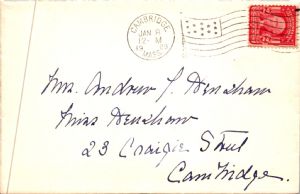 CAMBRIDGE
JAN 8
12 - M
MASS.
Mrs. Andrew J. Henshaw
Miss Henshaw
23 Craigie Street
Cambridge.